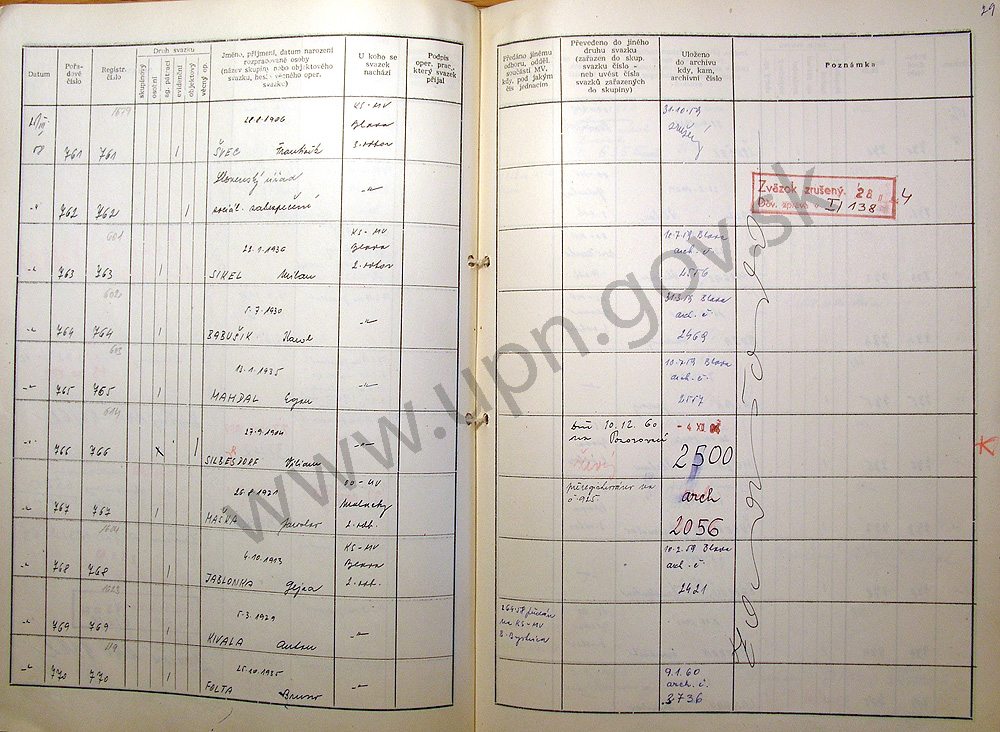 29
Datum
Pořa-
dové
číslo
Registr.
číslo
Druh svazku
skupinový
osobní
ag. pátrací
evidenční
objektový
věcný op.
Jméno, příjmení, datum narození
rozpracované osoby
(název skupiny nebo objektového
svazku, heslo věcného oper.
svazku)
U koho se
svazek
nachází
Podpis
oper. prac.,
který svazek
přijal
Předáno jinému
odboru, odděl.
součásti MV,
kdy, pod jakým
čís. jednacím
Převedeno do jiného
druhu svazku
(zařazen do skup.
svazku číslo -
neb uvést čísla
svazků zařazených
do skupiny)
Uloženo
do archivu
kdy, kam,
archivní číslo
Poznámka
1679
761 761
28.8.1906
ŠVEC František
KS-MV
Blava
3. odbor
31.10.59
zrušený
762 762
Slovenský úrad
sociál. zabezpečení
-"-
Zväzok zrušený. 28
Dov. zprava I/138
4
601
763 763
23.1.1936
SIKEL Milan
KS-MV
Blava
2. odbor
10.7.59 Blava
arch. č.
602
764 764
5.7.1930
BABUŠIK Karol
-"-
31.3.59 Blava
arch. č.
2469
603
765 765
13.1.1935
MAHDAL
-"-
10.7.59 Blava
arch. č.
2557
614
766 766
27.9.1904
SILBESDORF Viliam
-"-
dňa 10.12.60
na
- 4 XII
2500
767 767
26.8.1921
MAŠKA Jaroslav
OO-MV
Malacky
2. odd.
č. 925
arch
2056
1604
768 768
4.10.1913
JABLONKA Gejza
KS-MV
Blava
2. odd.
10.2.59 Blava
arch. č.
2421
1623
769 769
5.3.1929
KIVALA Anton
-"-
na KS-MV
B. Bystrica
119
770 770
25.10.1935
FOLTA Bruno
-"-
9.1.60
arch. č.
3736
www.upn.gov.sk